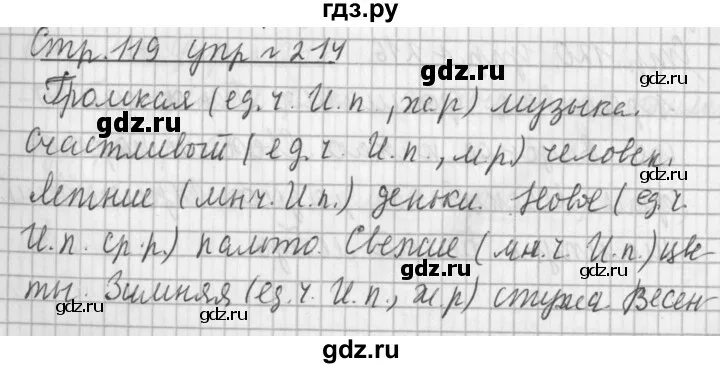 гдз.ру
Стр. 119 упр № 214
Громкая (ед.ч. И.п., ж.р) музыка.
gdz.ru
gdz.ru
Счастливый (ед.ч. И.п., м.р.) человек.
gdz.ru
Летние (мн.ч. И.п.) деньки. Новое (ед.ч.
gdz.ru
И.п. ср.р.) пальто. Свежие (мн.ч. И.п.) цве-
gdz.ru
gdz.ru
ты. Зимняя (ед.ч. И.п., ж.р) стужа. Весен-
gdz.ru
gdz.ru